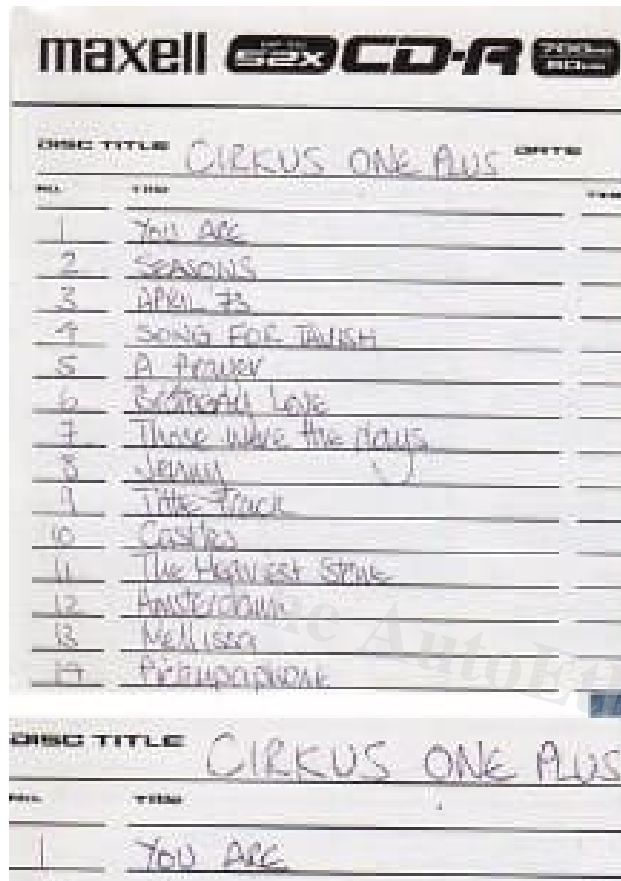 maxell 52x CD-R 700MB 80min
DISC TITLE CIRKUS ONE PLUS DATE
NO. TITLE
1 YOU ARE
2 SEASONS
3 APRIL '73
4 SONG FOR TAVISH
5 A Prayer
6 Brotherly Love
7 Those were the days
8 Jenny
9 Title Track
10 Castles
11 The Heaviest Stone
12 Amsterdam
13 Mellissa
14 Pickupaphone
DISC TITLE CIRKUS ONE PLUS
NO. TITLE
1 YOU ARE